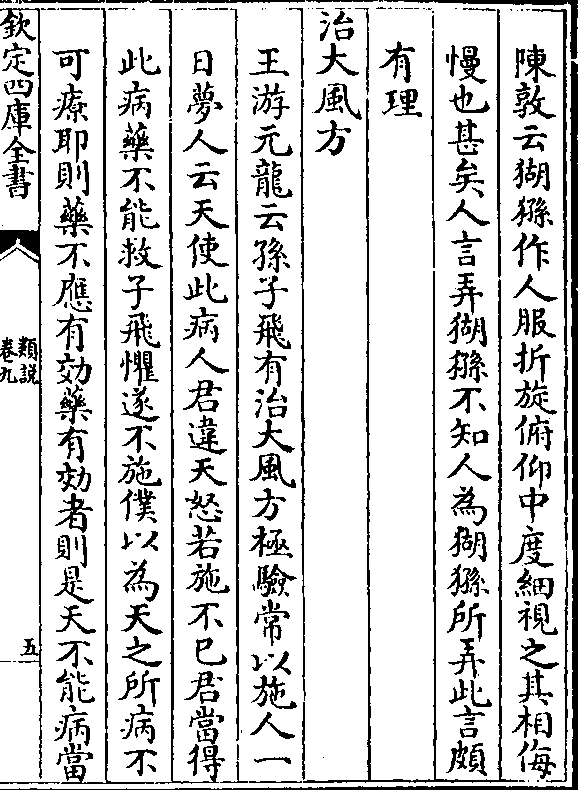 陳敦云猢猻作人服折旋俯仰中度細視之其相侮
慢也甚矣人言弄猢猻不知人為猢猻所弄此言頗
有理
治大風方
王游元龍云孫子飛有治大風方極驗常以施人一
日夢人云天使此病人君違天怒若施不已君當得
此病藥不能救子飛懼遂不施僕以為天之所病不
可療耶則藥不應有効藥有効者則是天不能病當
欽定四庫全書
類說
卷九
五